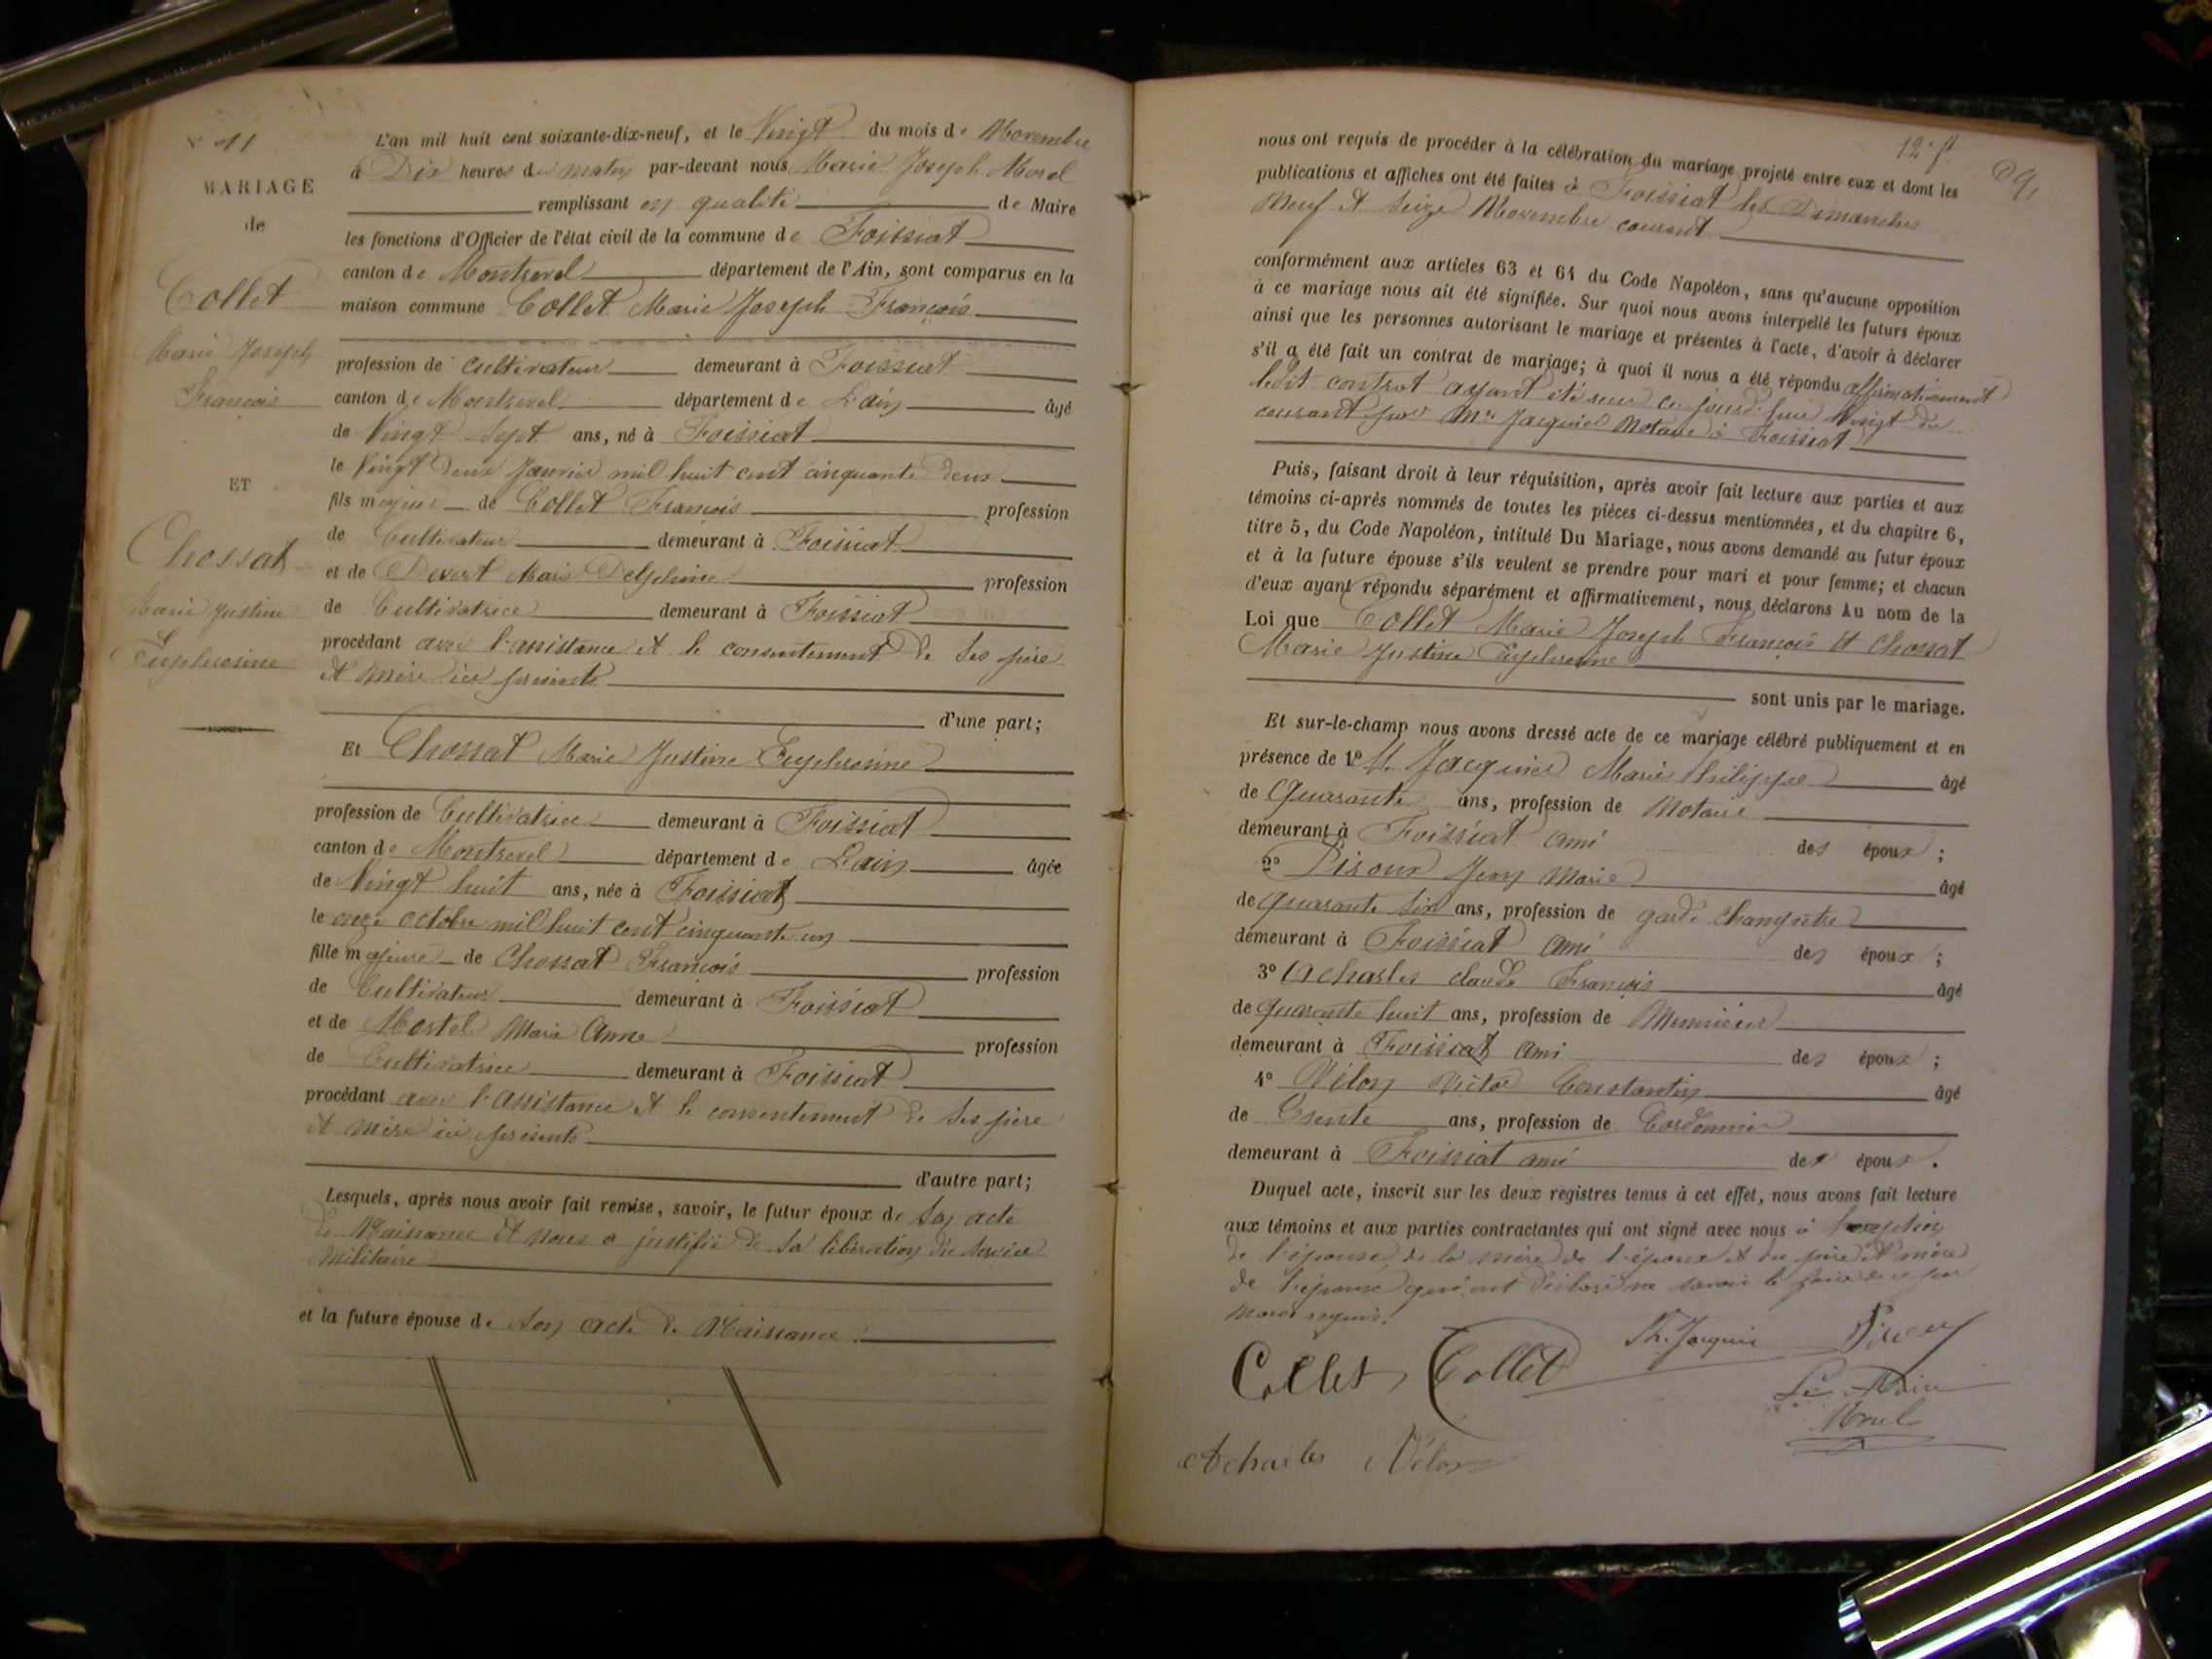 N° 11
MARIAGE
de
Collet
Marie Joseph
François
ET
Chossat
Marie Justine
Euphrosine
L'an mil huit cent soixante-dix-neuf, et le Vingt du mois de Novembre
à Dix heures du matin par-devant nous Marie Joseph Morel
remplissant en qualité de Maire
les fonctions d'Officier de l'état civil de la commune de Foissiat
canton de Montrevel département de l'Ain, sont comparus en la
maison commune Collet Marie Joseph François
profession de cultivateur demeurant à Foissiat
canton de Montrevel département de L'ain âgé
de Vingt Sept ans, né à Foissiat
le Vingt Deux Janvier mil huit cent cinquante Deux
fils majeur de Collet François profession
de Cultivateur demeurant à Foissiat
et de Marie Delphine profession
de Cultivatrice demeurant à Foissiat
procédant avec l'assistance et le consentement de ses père
et mère ici présents
d'une part;
Et Chossat Marie Justine Euphrosine
profession de Cultivatrice demeurant à Foissiat
canton de Montrevel département de L'ain âgée
de Vingt huit ans, née à Foissiat
le onze octobre mil huit cent cinquante un
fille majeure de Chossat François profession
de Cultivateur demeurant à Foissiat
et de Mostel Marie Anne profession
de Cultivatrice demeurant à Foissiat
procédant avec l'assistance et le consentement de ses père
et mère ici présents
d'autre part;
Lesquels, après nous avoir fait remise, savoir, le futur époux de son acte
de Naissance et nous a justifié de sa libération du service
militaire
et la future épouse de son acte de Naissance.
12e ft
nous ont requis de procéder à la célébration du mariage projeté entre eux et dont les
publications et affiches ont été faites à Foissiat les Dimanches
Neuf et Seize Novembre courant
conformément aux articles 63 et 64 du Code Napoléon, sans qu'aucune opposition
à ce mariage nous ait été signifiée. Sur quoi nous avons interpellé les futurs époux
ainsi que les personnes autorisant le mariage et présentes à l'acte, d'avoir à déclarer
s'il a été fait un contrat de mariage; à quoi il nous a été répondu affirmativement
ledit contrat ayant été reçu ce jourd'hui Vingt du
courant par Me Jacquier Notaire à Foissiat
Puis, faisant droit à leur réquisition, après avoir fait lecture aux parties et aux
témoins ci-après nommés de toutes les pièces ci-dessus mentionnées, et du chapitre 6,
titre 5, du Code Napoléon, intitulé Du Mariage, nous avons demandé au futur époux
et à la future épouse s'ils veulent se prendre pour mari et pour femme; et chacun
d'eux ayant répondu séparément et affirmativement, nous déclarons Au nom de la
Loi que Collet Marie Joseph François et Chossat
Marie Justine Euphrosine
sont unis par le mariage.
Et sur-le-champ nous avons dressé acte de ce mariage célébré publiquement et en
présence de 1° M. Jacquier Marie Philippe âgé
de Quarante ans, profession de Notaire
demeurant à Foissiat ami des époux ;
2° Piroux Jean Marie âgé
de quarante six ans, profession de garde champêtre
demeurant à Foissiat ami des époux ;
3° Acharles claude François âgé
de quarante huit ans, profession de Meunier
demeurant à Foissiat ami des époux ;
4° Vélon Victor Constantin âgé
de Trente ans, profession de Cordonnier
demeurant à Foissiat ami des époux.
Duquel acte, inscrit sur les deux registres tenus à cet effet, nous avons fait lecture
aux témoins et aux parties contractantes qui ont signé avec nous à l'exception
de l'épouse, de la mère de l'époux et des père et mère
de l'épouse qui ont déclaré ne savoir le faire de ce par
nous requis.
Collet Collet Ph. Jacquier Piroux
Le Maire
Morel
Acharles Vélon